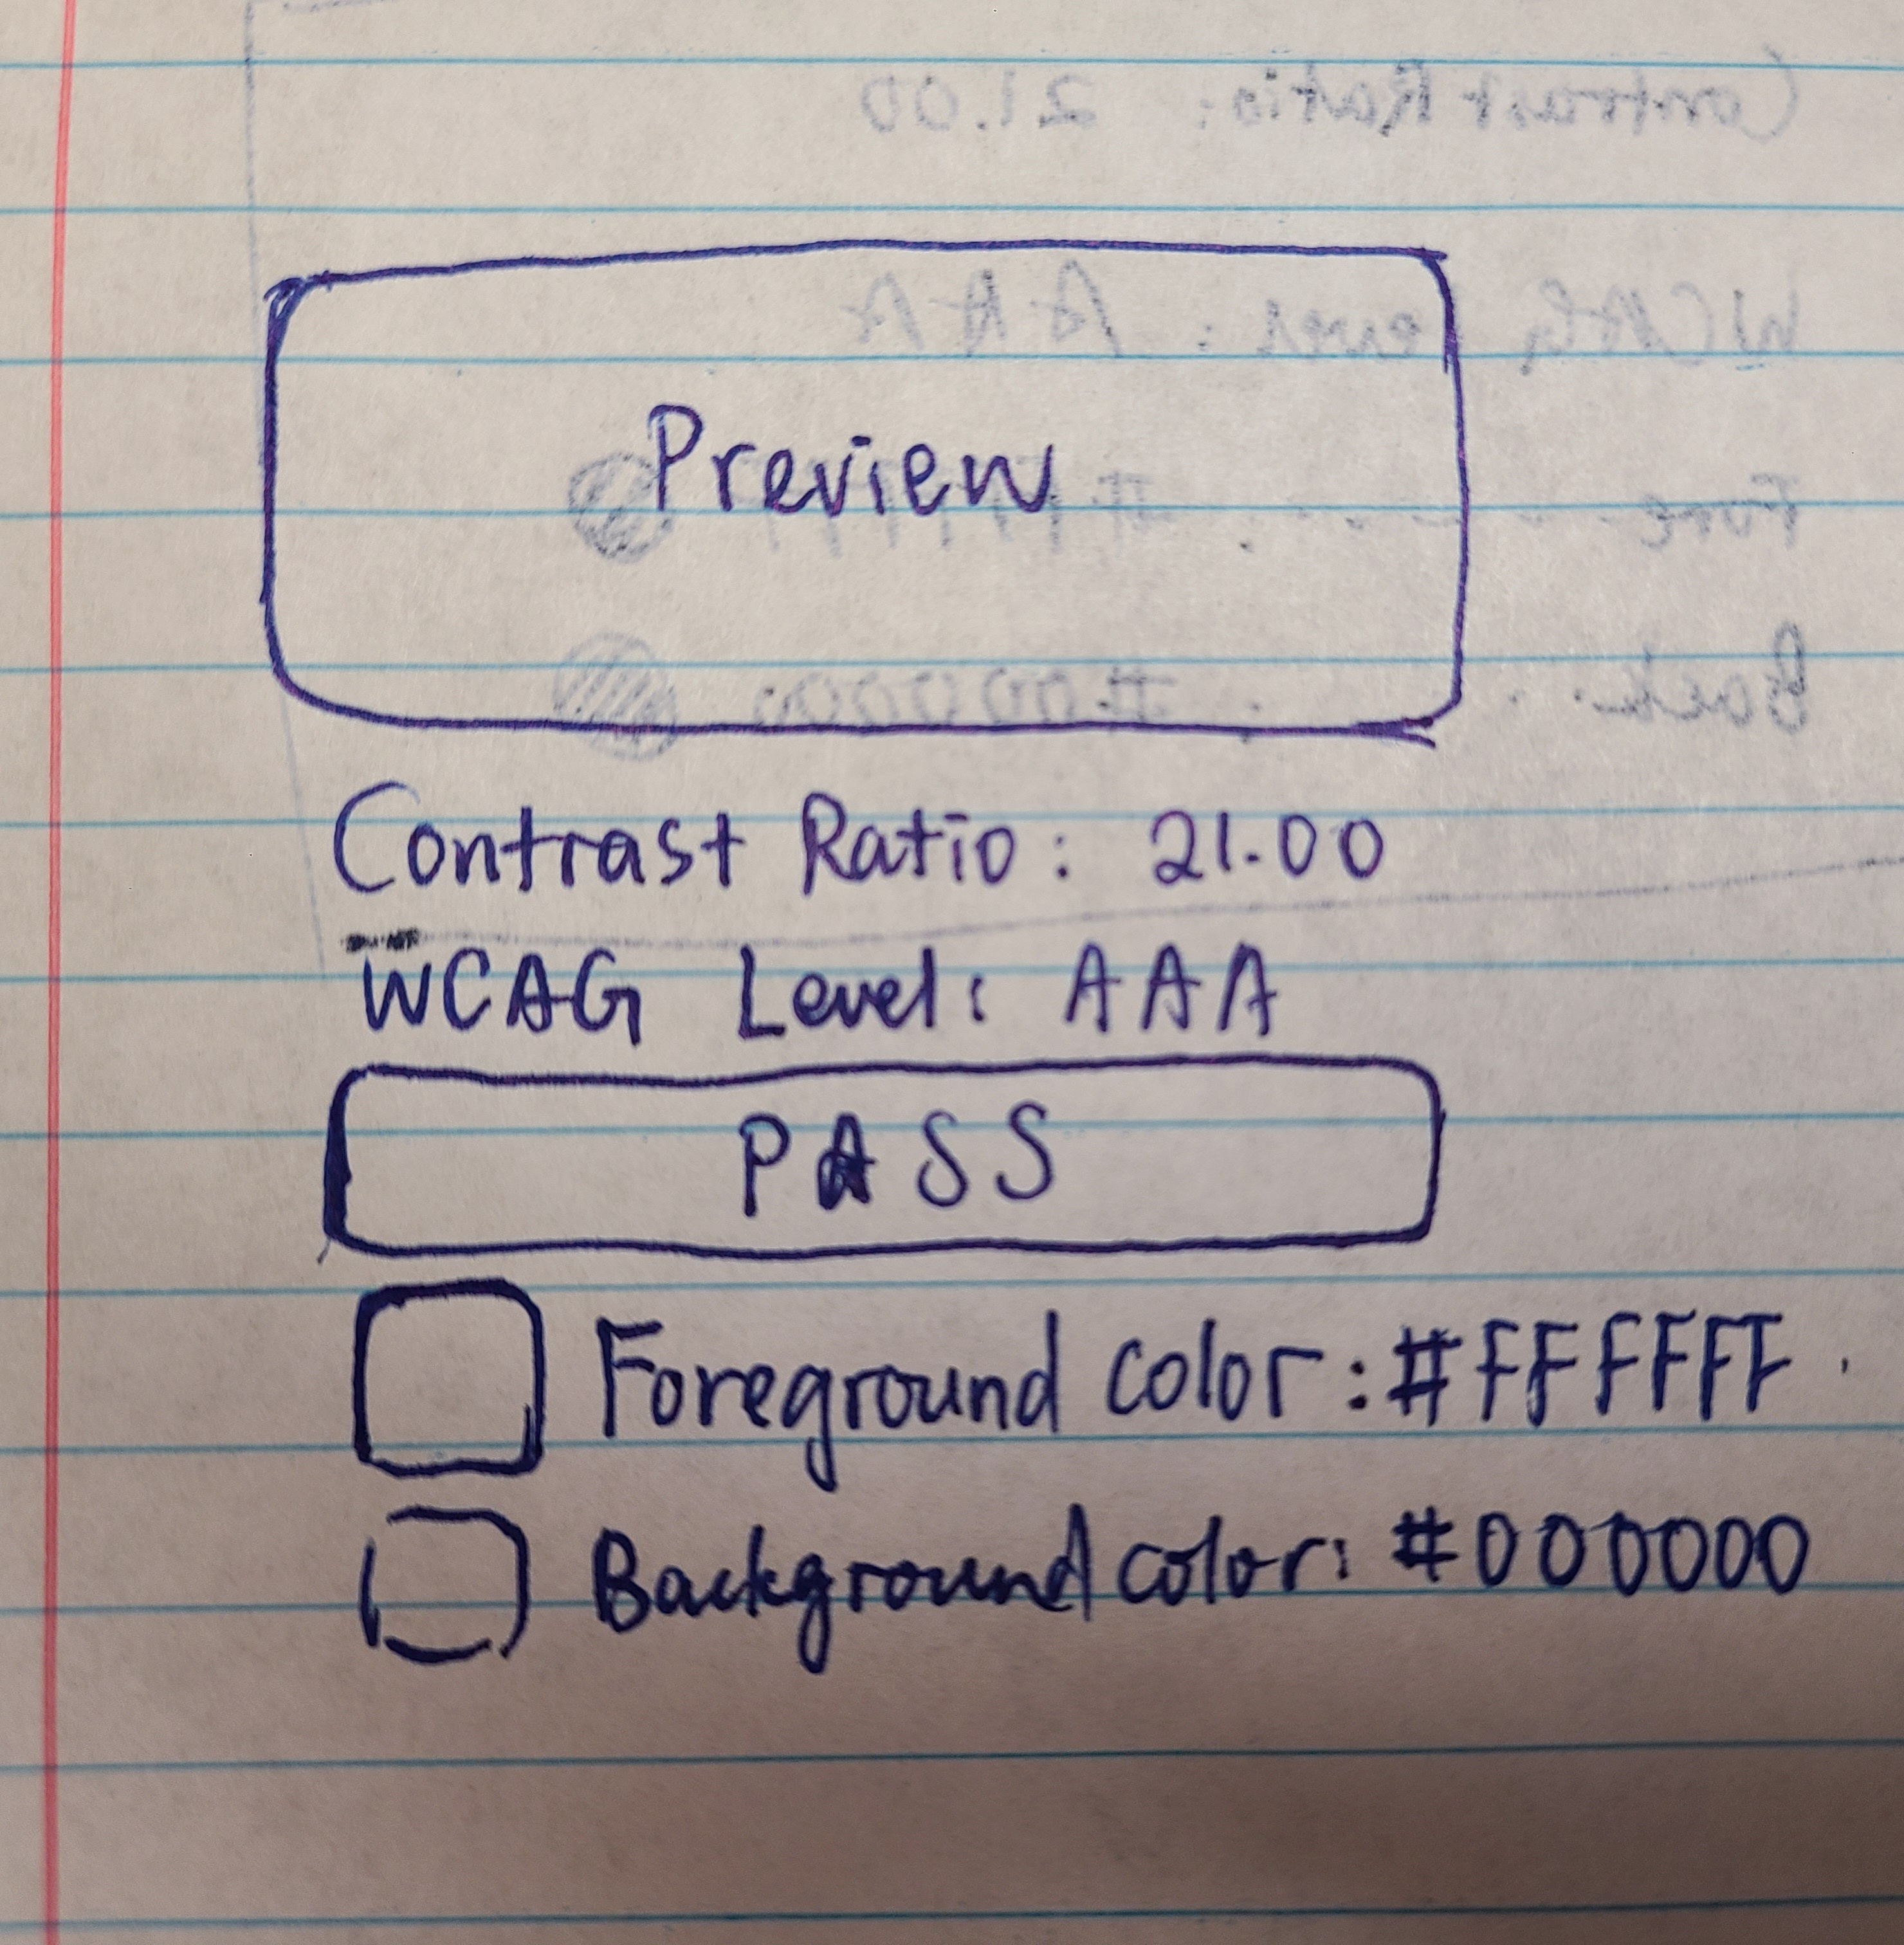 Preview
Contrast Ratio: 21.00
WCAG Level: AAA
PASS
Foreground color: #FFFFFF
Background color: #000000